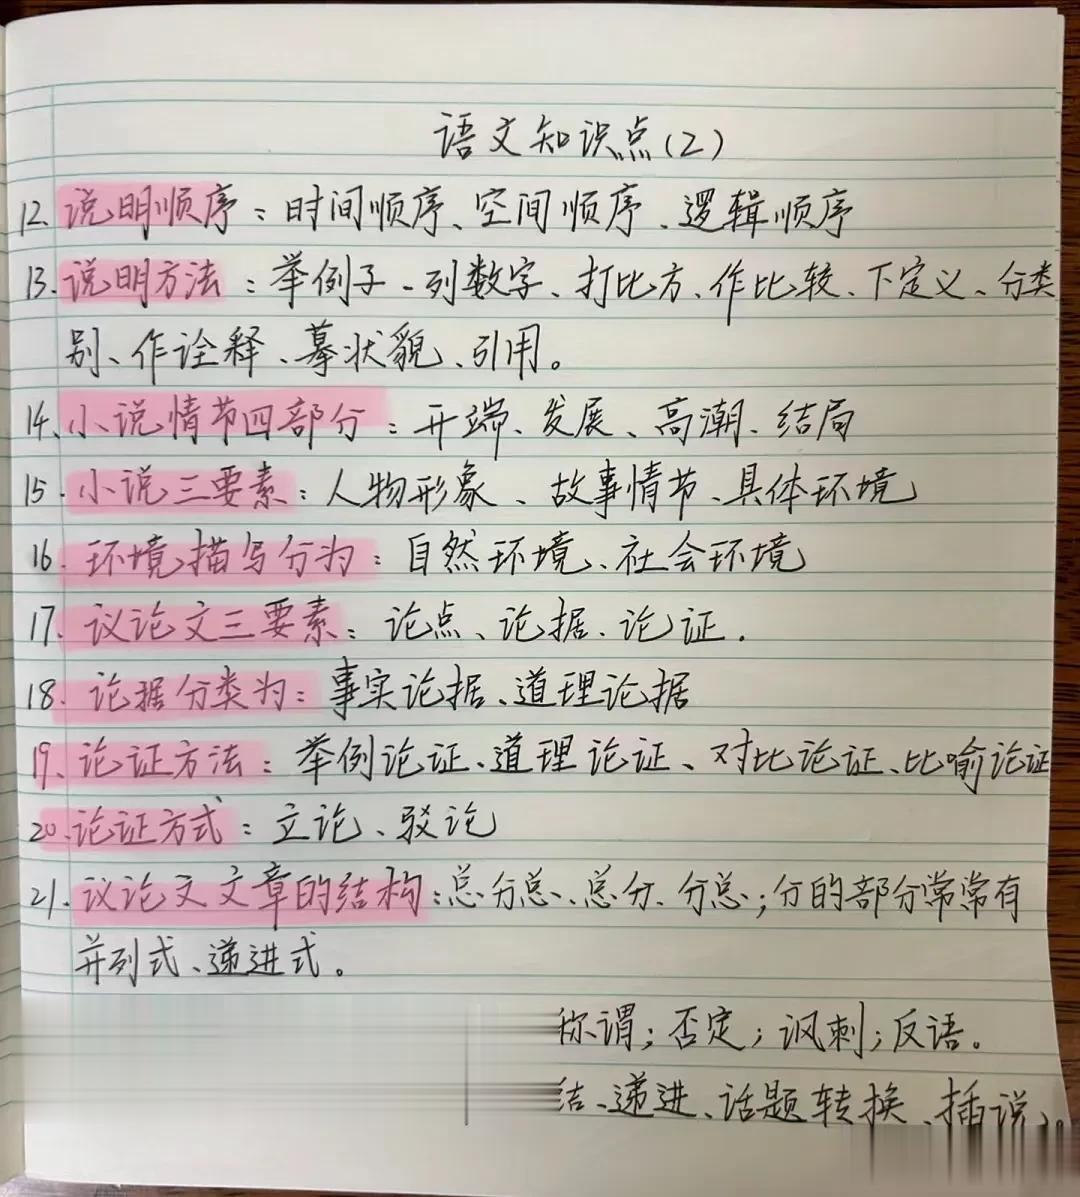 语文知识点(2)
12. 说明顺序：时间顺序、空间顺序、逻辑顺序
13. 说明方法：举例子、列数字、打比方、作比较、下定义、分类
别、作诠释、摹状貌、引用。
14、小说情节四部分：开端、发展、高潮、结局
15. 小说三要素：人物形象、故事情节、具体环境
16. 环境描写分为：自然环境、社会环境
17. 议论文三要素：论点、论据、论证.
18. 论据分类为：事实论据、道理论据
19、论证方法：举例论证、道理论证、对比论证、比喻论证
20.论证方式：立论、驳论
21. 议论文文章的结构：总分总、总分、分总；分的部分常常有
并列式、递进式。
称谓；否定；讽刺；反语。
结、递进、话题转换、插说。